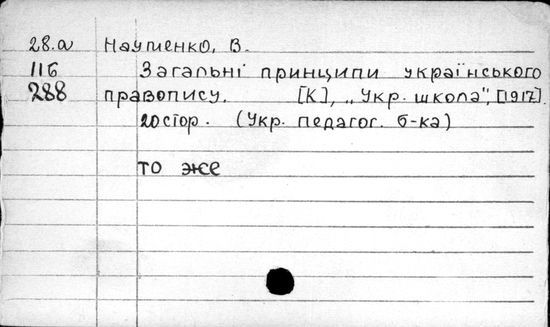 28.а Науменко, В.
116 Загальні принципи українського
288 правопису. [К], „Укр. школа", [1917].
20 стор. (Укр. педагог. б-ка)
то же